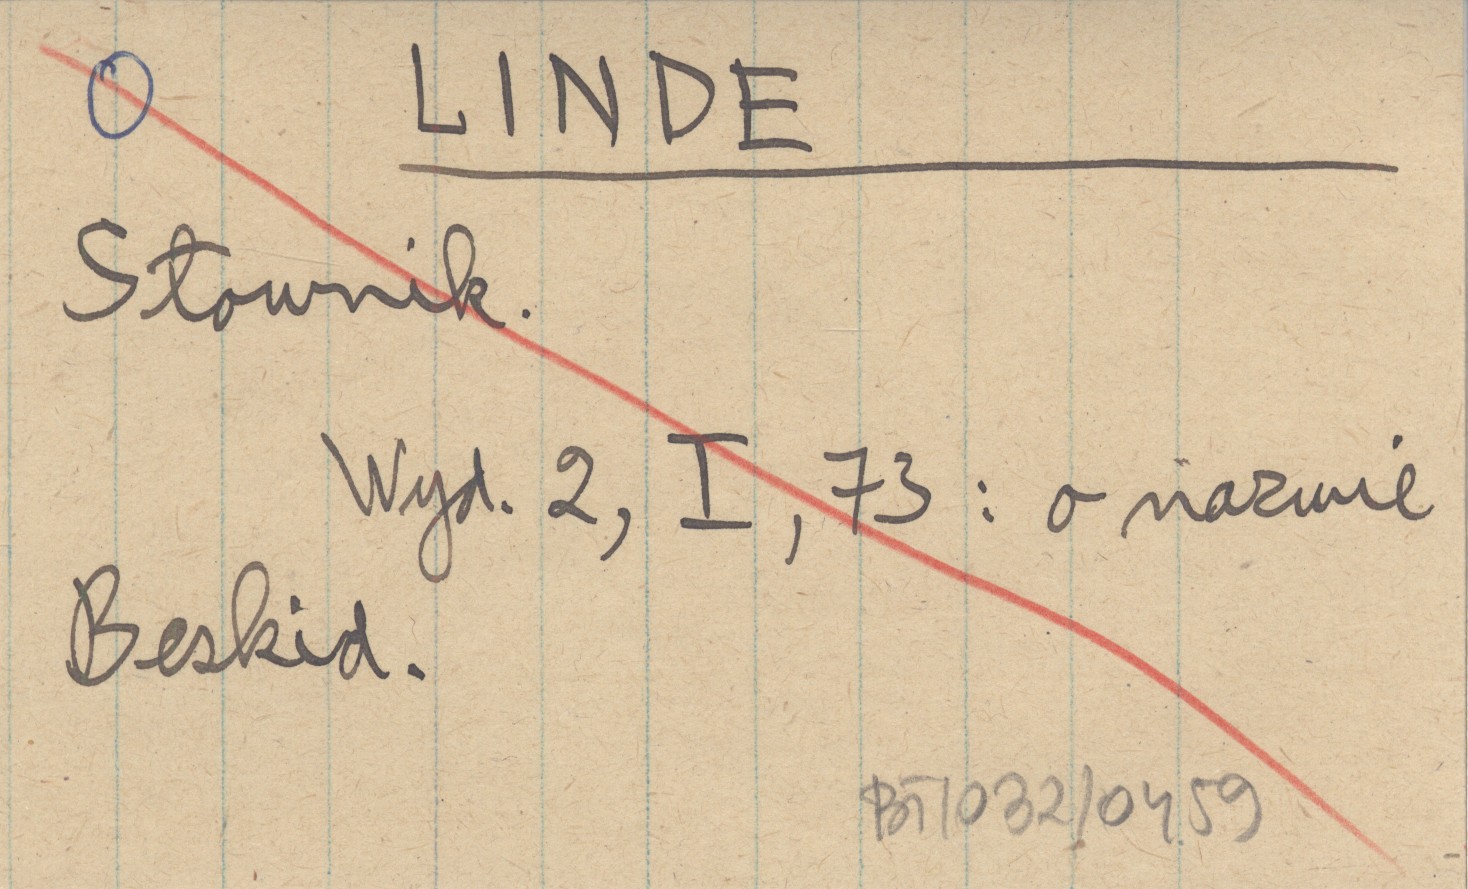 O LINDE
Słownik.
Wyd. 2, I, 73: o nazwie
Beskid.
BT/032/0459